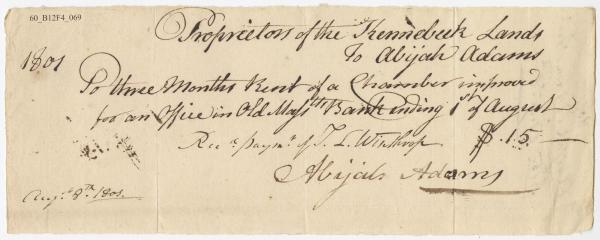 60_B12F4_069
Proprietors of the Kennebeck Lands
To Abijah Adams
1801
To three Months Rent of a Chamber improved
for an Office in Old Massts Bank ending 1st of August
Recd paymt of T. L. Winthrop $.15
Abijah Adams
Augt 8th 1801.